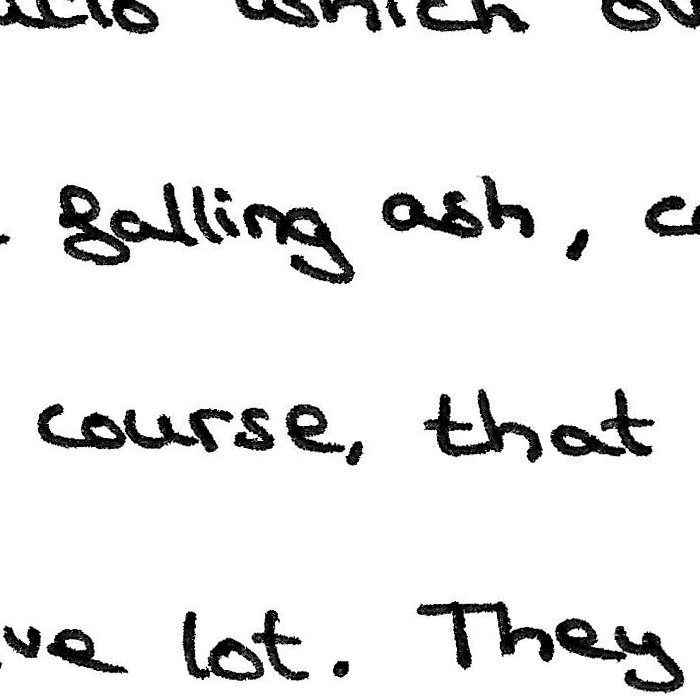 which
falling ash,
course, that
lot. They